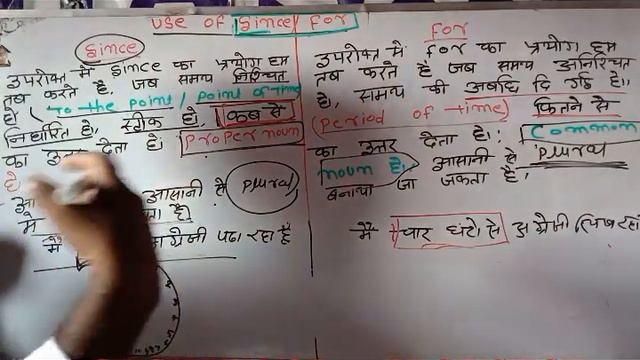 use of Since For
Since
उपरोक्त मे since का प्रयोग हम
तब करते है, जब समय निश्चित
हो To the point / point of time
निर्धारित हो, स्टीक हो, कब से
का उत्तर देता है। Proper noun
है
आसानी से Plural
मे है।
मैं अंग्रेजी पढा रहा हूँ
For
उपरोक्त मे for का प्रयोग हम
तब करते है जब समय अनिश्चित
है, समय की अवधि दि गई है।
(Period of time) कितने से
का उत्तर देता है। Common
noun है, आसानी से Plural
बनाया जा जकता है,
मैं चार घंटो से अंग्रेजी लिख रहा